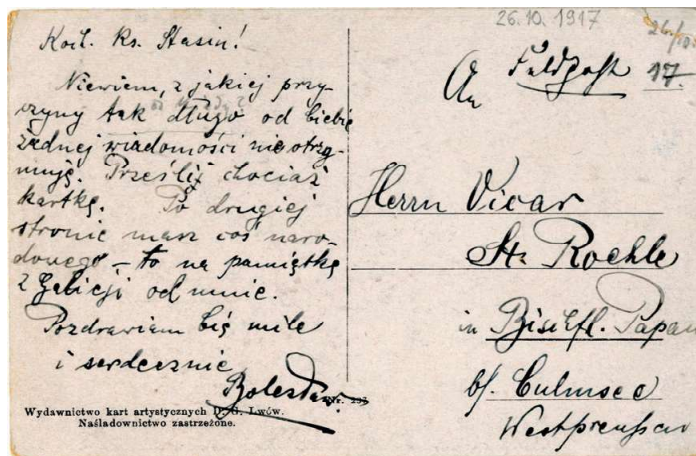 26.10.1917
Koch. Ks. Stasiu!
Niewiem, z jakiej przy-
czyny tak długo od Ciebie
żadnej wiadomości nie otrzy-
muję. Prześlij chociaż
kartkę. Po drugiej
stronie masz coś naro-
dowego, – to na pamiątkę
z Galicji od mnie.
Pozdrawiam Cię mile
i serdecznie
Bolesław.
Wydawnictwo kart artystycznych D. G. Lwów.
Naśladownictwo zastrzeżone.
Feldpost 17
An
Herrn Vicar
St. Rochle
in Bischfl. Papau
bf. Culmsee
Westpreussen